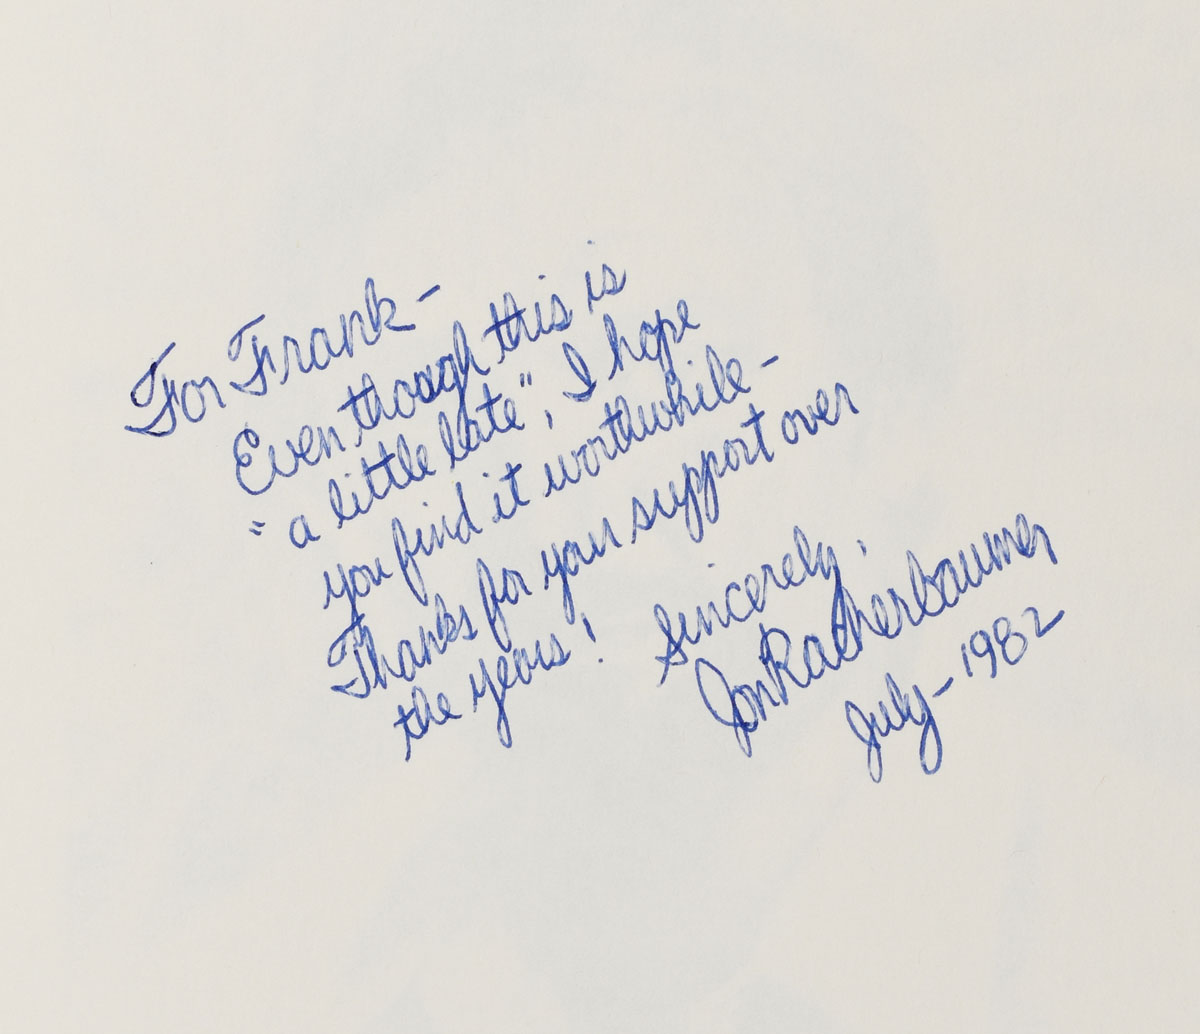 For Frank –
Even though this is
"a little late", I hope
you find it worthwhile –
Thanks for your support over
the years!
Sincerely,
Jon Racherbaumer
July – 1982